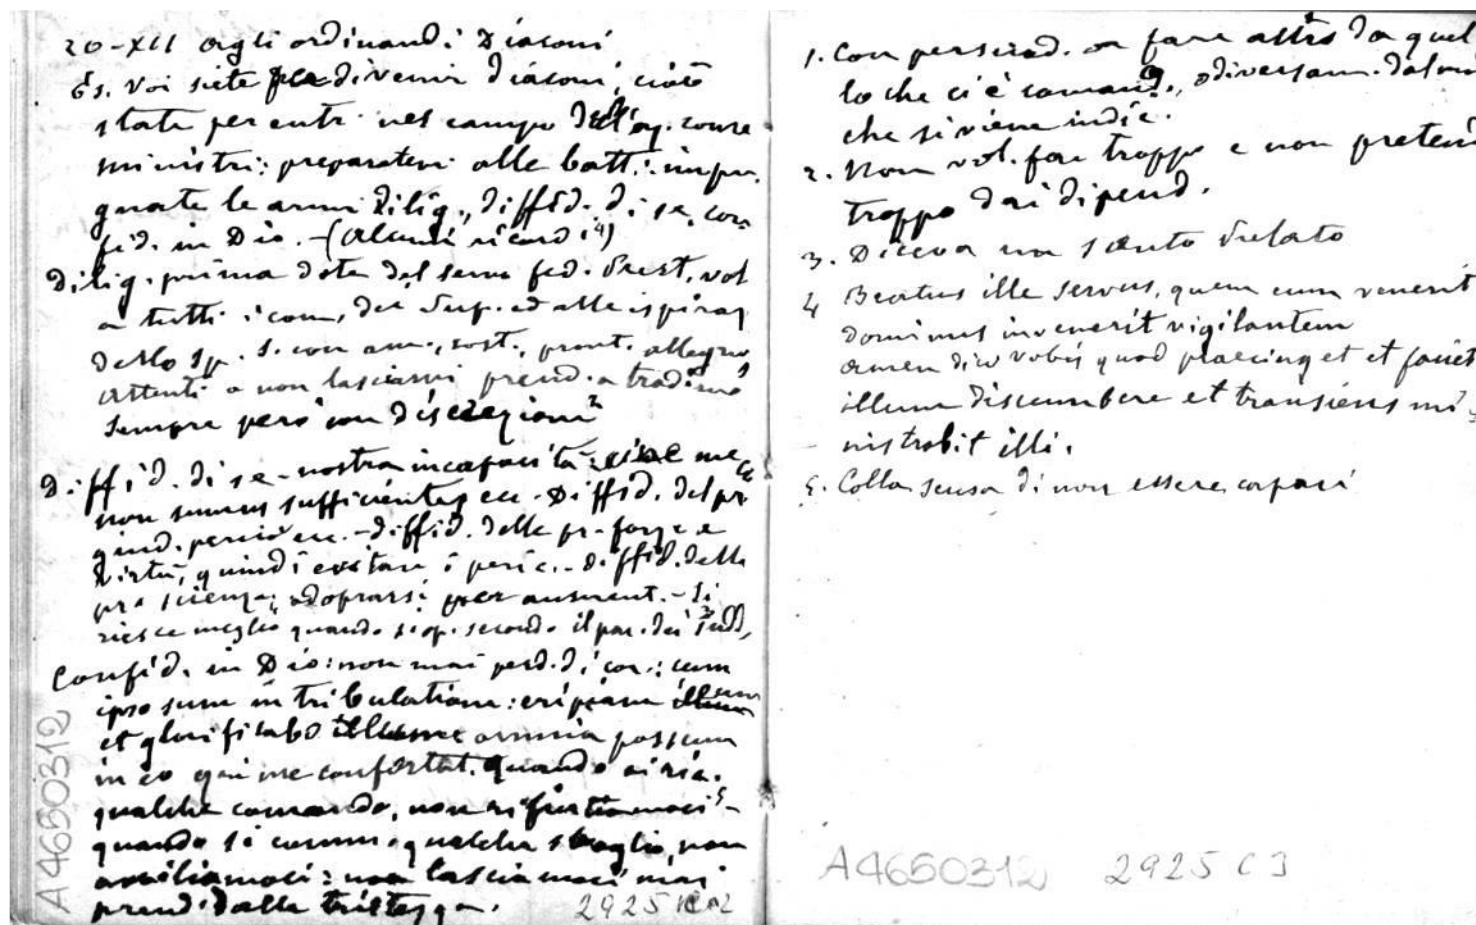 20-XII agli ordinandi Diaconi
Es. Voi siete per divenir diaconi, cioè
state per entr. nel campo dell'az. come
ministri: preparatevi alle batt.: impu-
gnate le armi dilig., diffid. di se, con-
fid. in Dio. - (Alcuni ricordi 4)
Dilig. prima dote del servo fed. Prest. vol
a tutti i com. dei Sup. ed alle ispiraz
dello Sp. S. con am., cost., pront. allegria
attenti a non lasciarvi prend. a tradim.
sempre però con discrezione 2
Diffid. di se - nostra incapacità:
non sumus sufficientes ecc. - Diffid. del pr.
giud. perciò ecc. - diffid. delle pr. forze e
virtù, quindi evitare i peric. - diffid. della
pr. scienza: adoprarsi per aument. - Si
riesce meglio quando si op. secondo il par. dei 3
Confid. in Dio: non mai perd. di cor.: cum
ipso sum in tribulatione: eripiam eum
et glorificabo omnia possum
in eo qui me confortat. Quando ci ric.
qualche comando, non rifiutiamoci 5 -
quando si comm. qualche sbaglio, non
avviliamoci: non lasciamoci mai
prend. dalla tristezza.
A4650312
2925 C 2
1. Con persuad. a fare altro da quel
lo che ci è comand., o diversam. dal mo
che si viene indic.
2. Non vol. far troppo e non preten
troppo dai dipend.
3. Diceva un santo Prelato
4 Beatus ille servus, quem cum venerit
dominus invenerit vigilantem
amen dico vobis quod praecinget et faciet
illum discumbere et transiens mi
nistrabit illi.
5. Colla scusa di non essere capaci
A4650312 2925 C 3